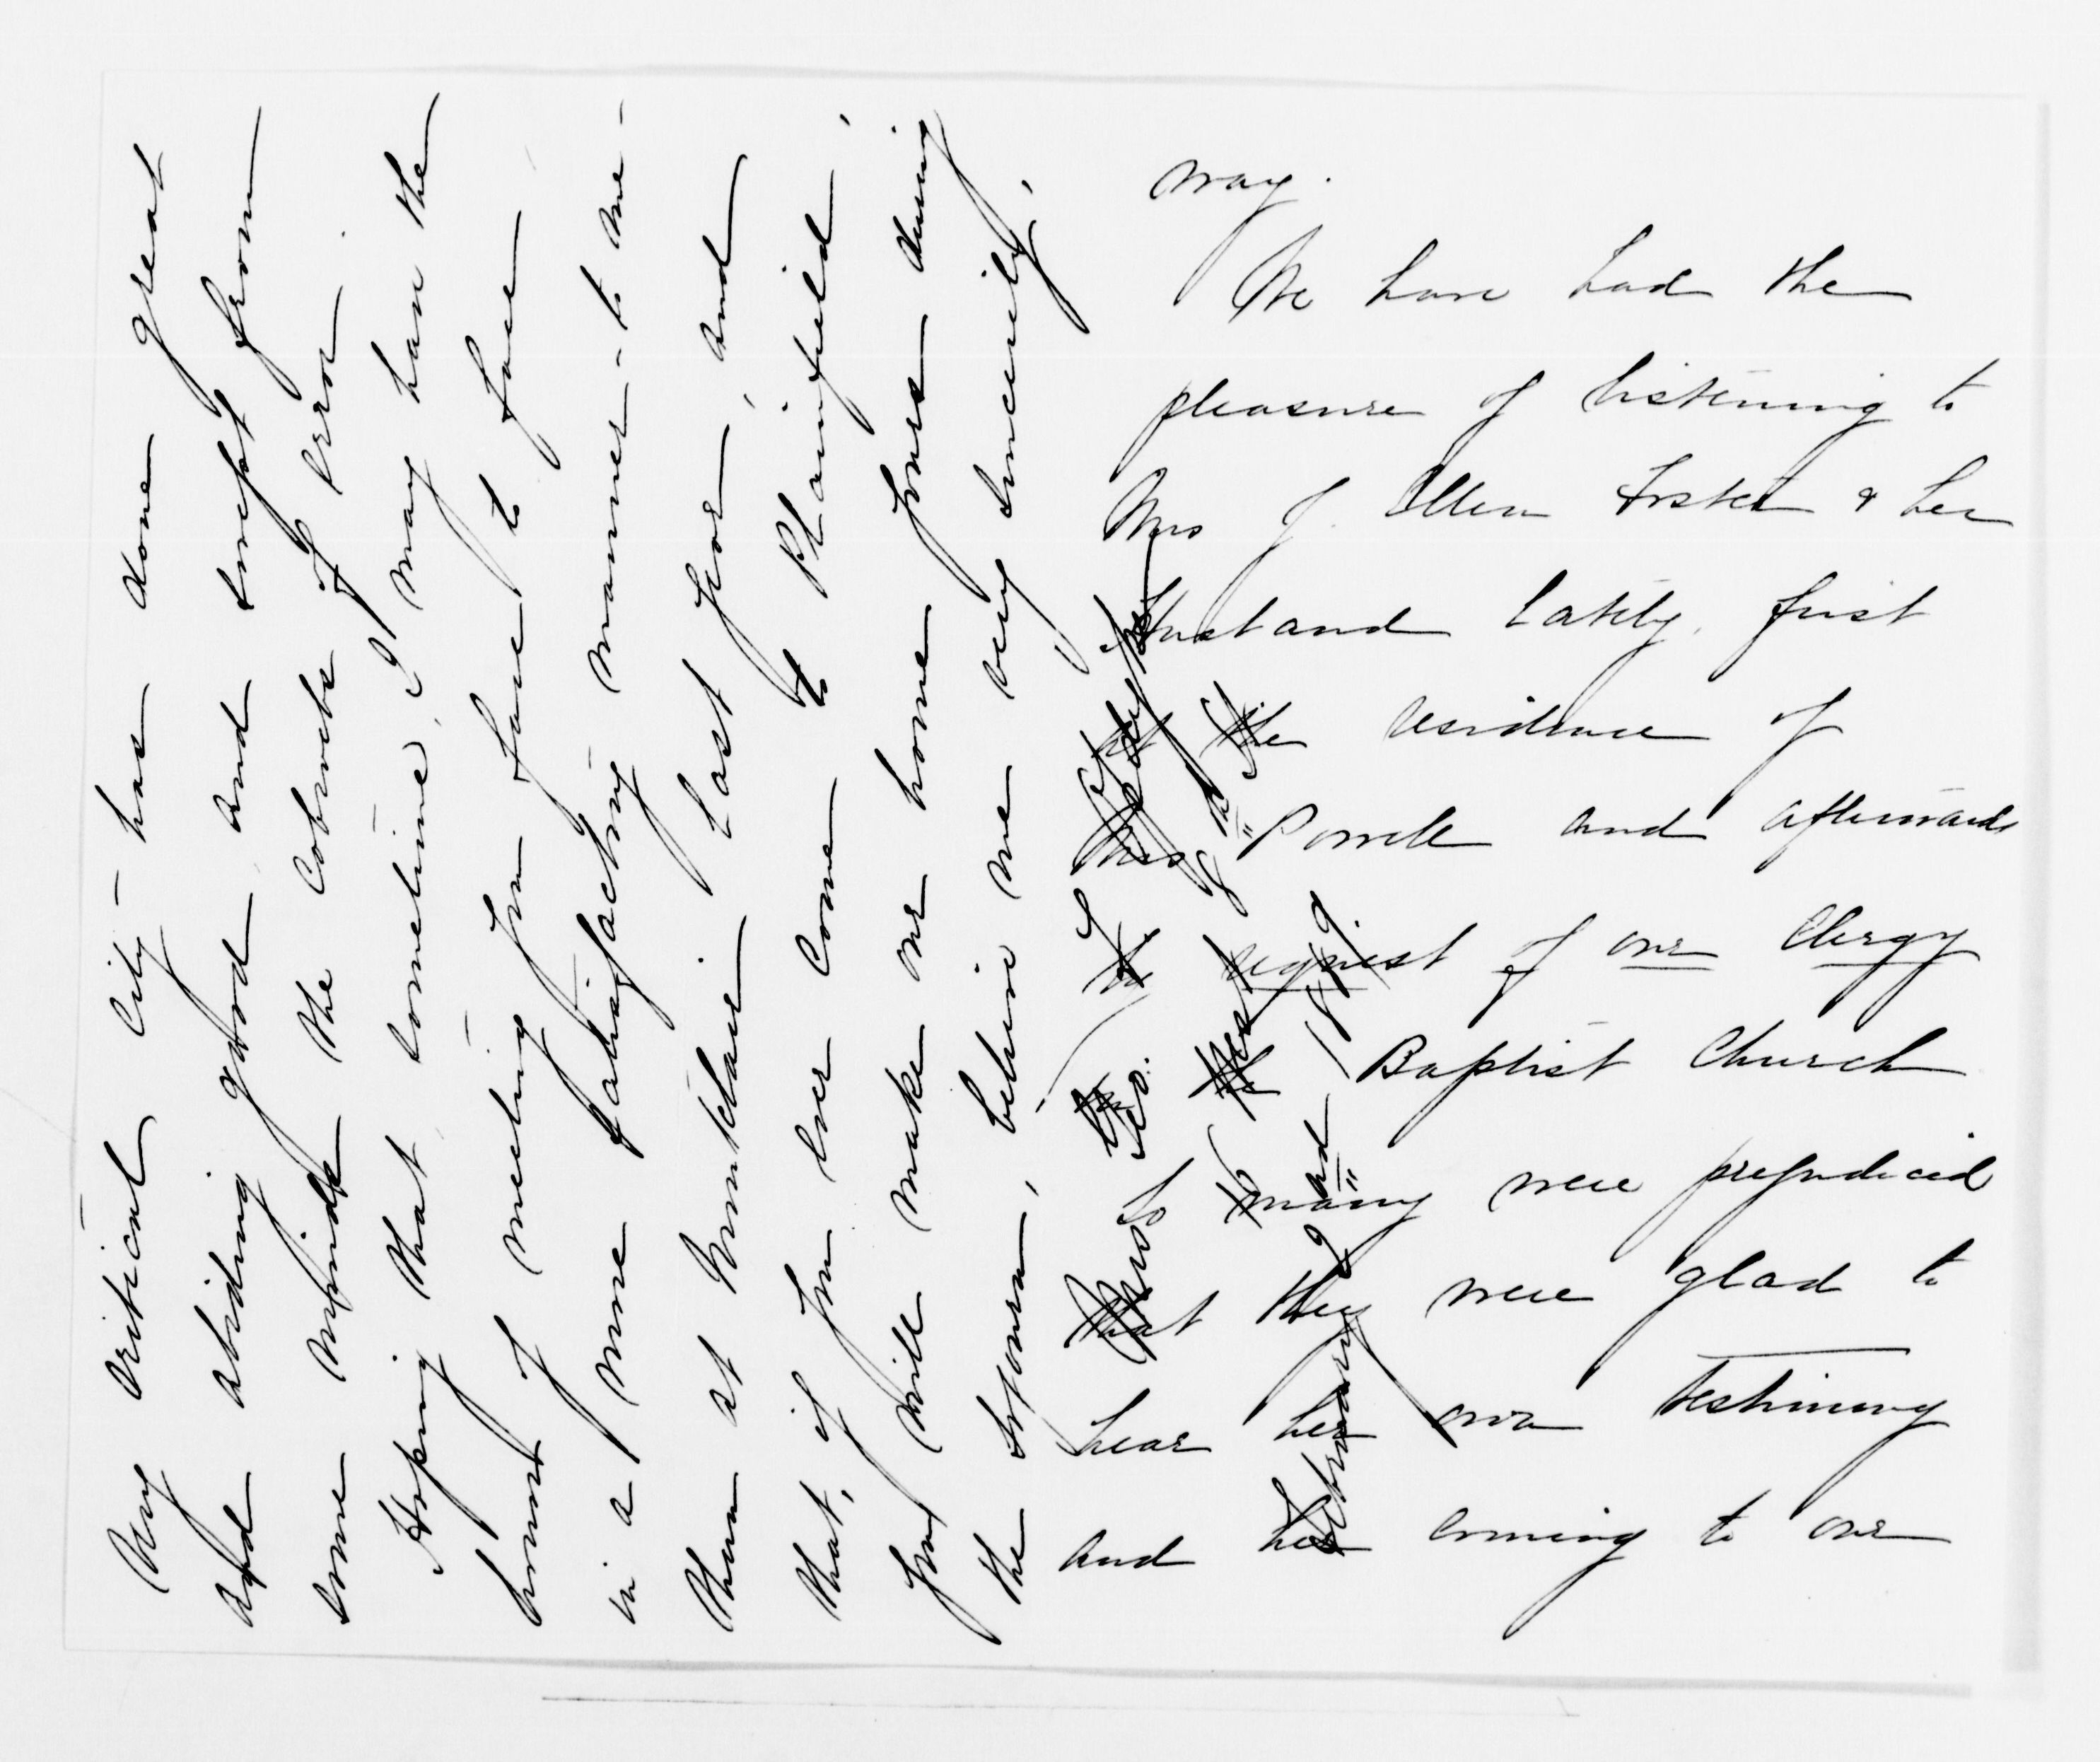 way.
We have had the
pleasure of listening to
Mrs J. Ellen Foster & her
Husband lately, first
at the residence of
Mrs Powell and afterwards
by request of our Clergy
in the Baptist Church
So many were prejudiced
that they were glad to
hear her own testimony
and her coming to our
very critical City - has done great
and abiding good and swept from
some minds the cobwebs of error.
Hoping that sometime, I may have the
honor of meeting you face to face
in a more satisfactory manner - to me -
than at Montclair last year, and
that, if you ever come to Plainfield,
you will make our home yours during
the sojourn, believe me very sincerely,
Mrs Geo.
West 8th St
February 2nd 1889